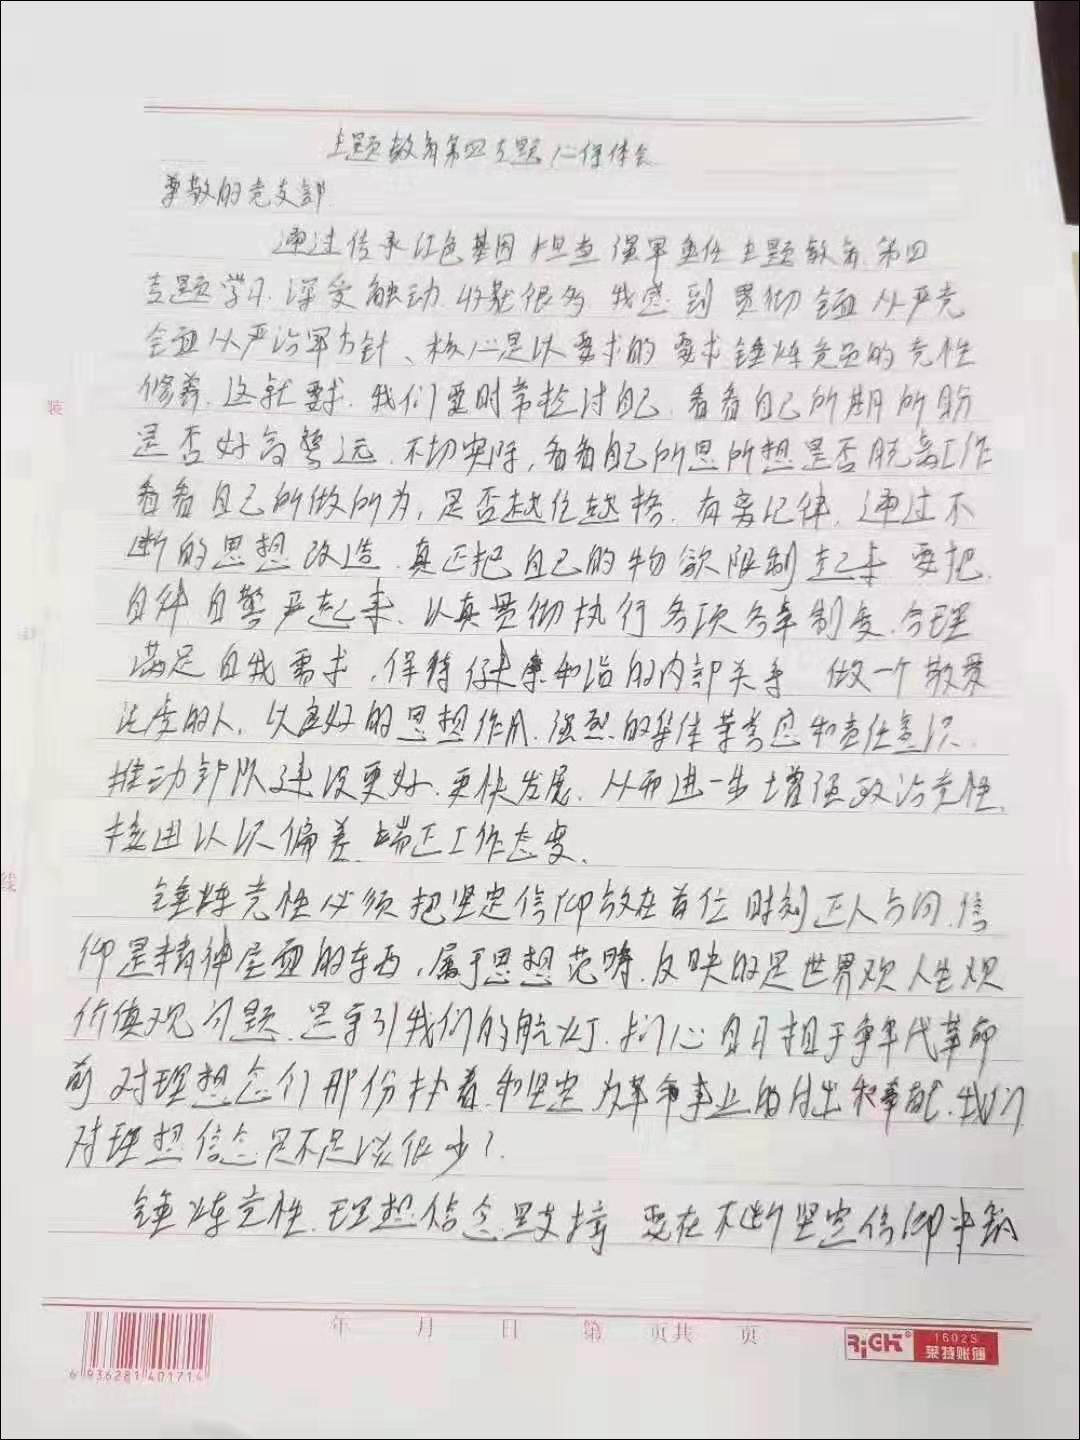 主题教育第四专题心得体会
尊敬的党支部
通过传承红色基因 担当强军重任 主题教育 第四
专题学习,深受触动,收获很多,我感到 贯彻全面从严治党
全面从严治军方针、核心是以要求的要求锤炼党员的党性
修养,这就要求,我们要时常检讨自己,看看自己所期所盼
是否好高骛远,不切实际,看看自己所思所想是否脱离工作
看看自己所做所为,是否越位越格,有辱纪律,通过不
断的思想改造,真正把自己的物欲限制起来 要把
自律自警严起来,认真贯彻执行各项条令制度,合理
满足自我需求,保持健康和谐的内部关系 做一个敬畏
法度的人,以良好的思想作风,强烈的集体荣誉感和责任意识
推动部队建设更好,更快发展,从而进一步增强政治党性,
校正认识偏差,端正工作态度。
锤炼党性必须把坚定信仰放在首位 时刻正人
仰是精神层面的东西,属于思想范畴,反映的是世界观人生观
价值观问题,是牵引我们的航灯,扪心自问相于争年代革命
前 对理想念们那份执着,和坚定 为革命事业的付出和奉献,我们
对理想信念是不是谈很少?
锤炼党性,理想信念是支撑 要在不断坚定信仰中
年 月 日 第 页共 页
RiCH 1602S
莱特账簿
6 936281 401714
装
线